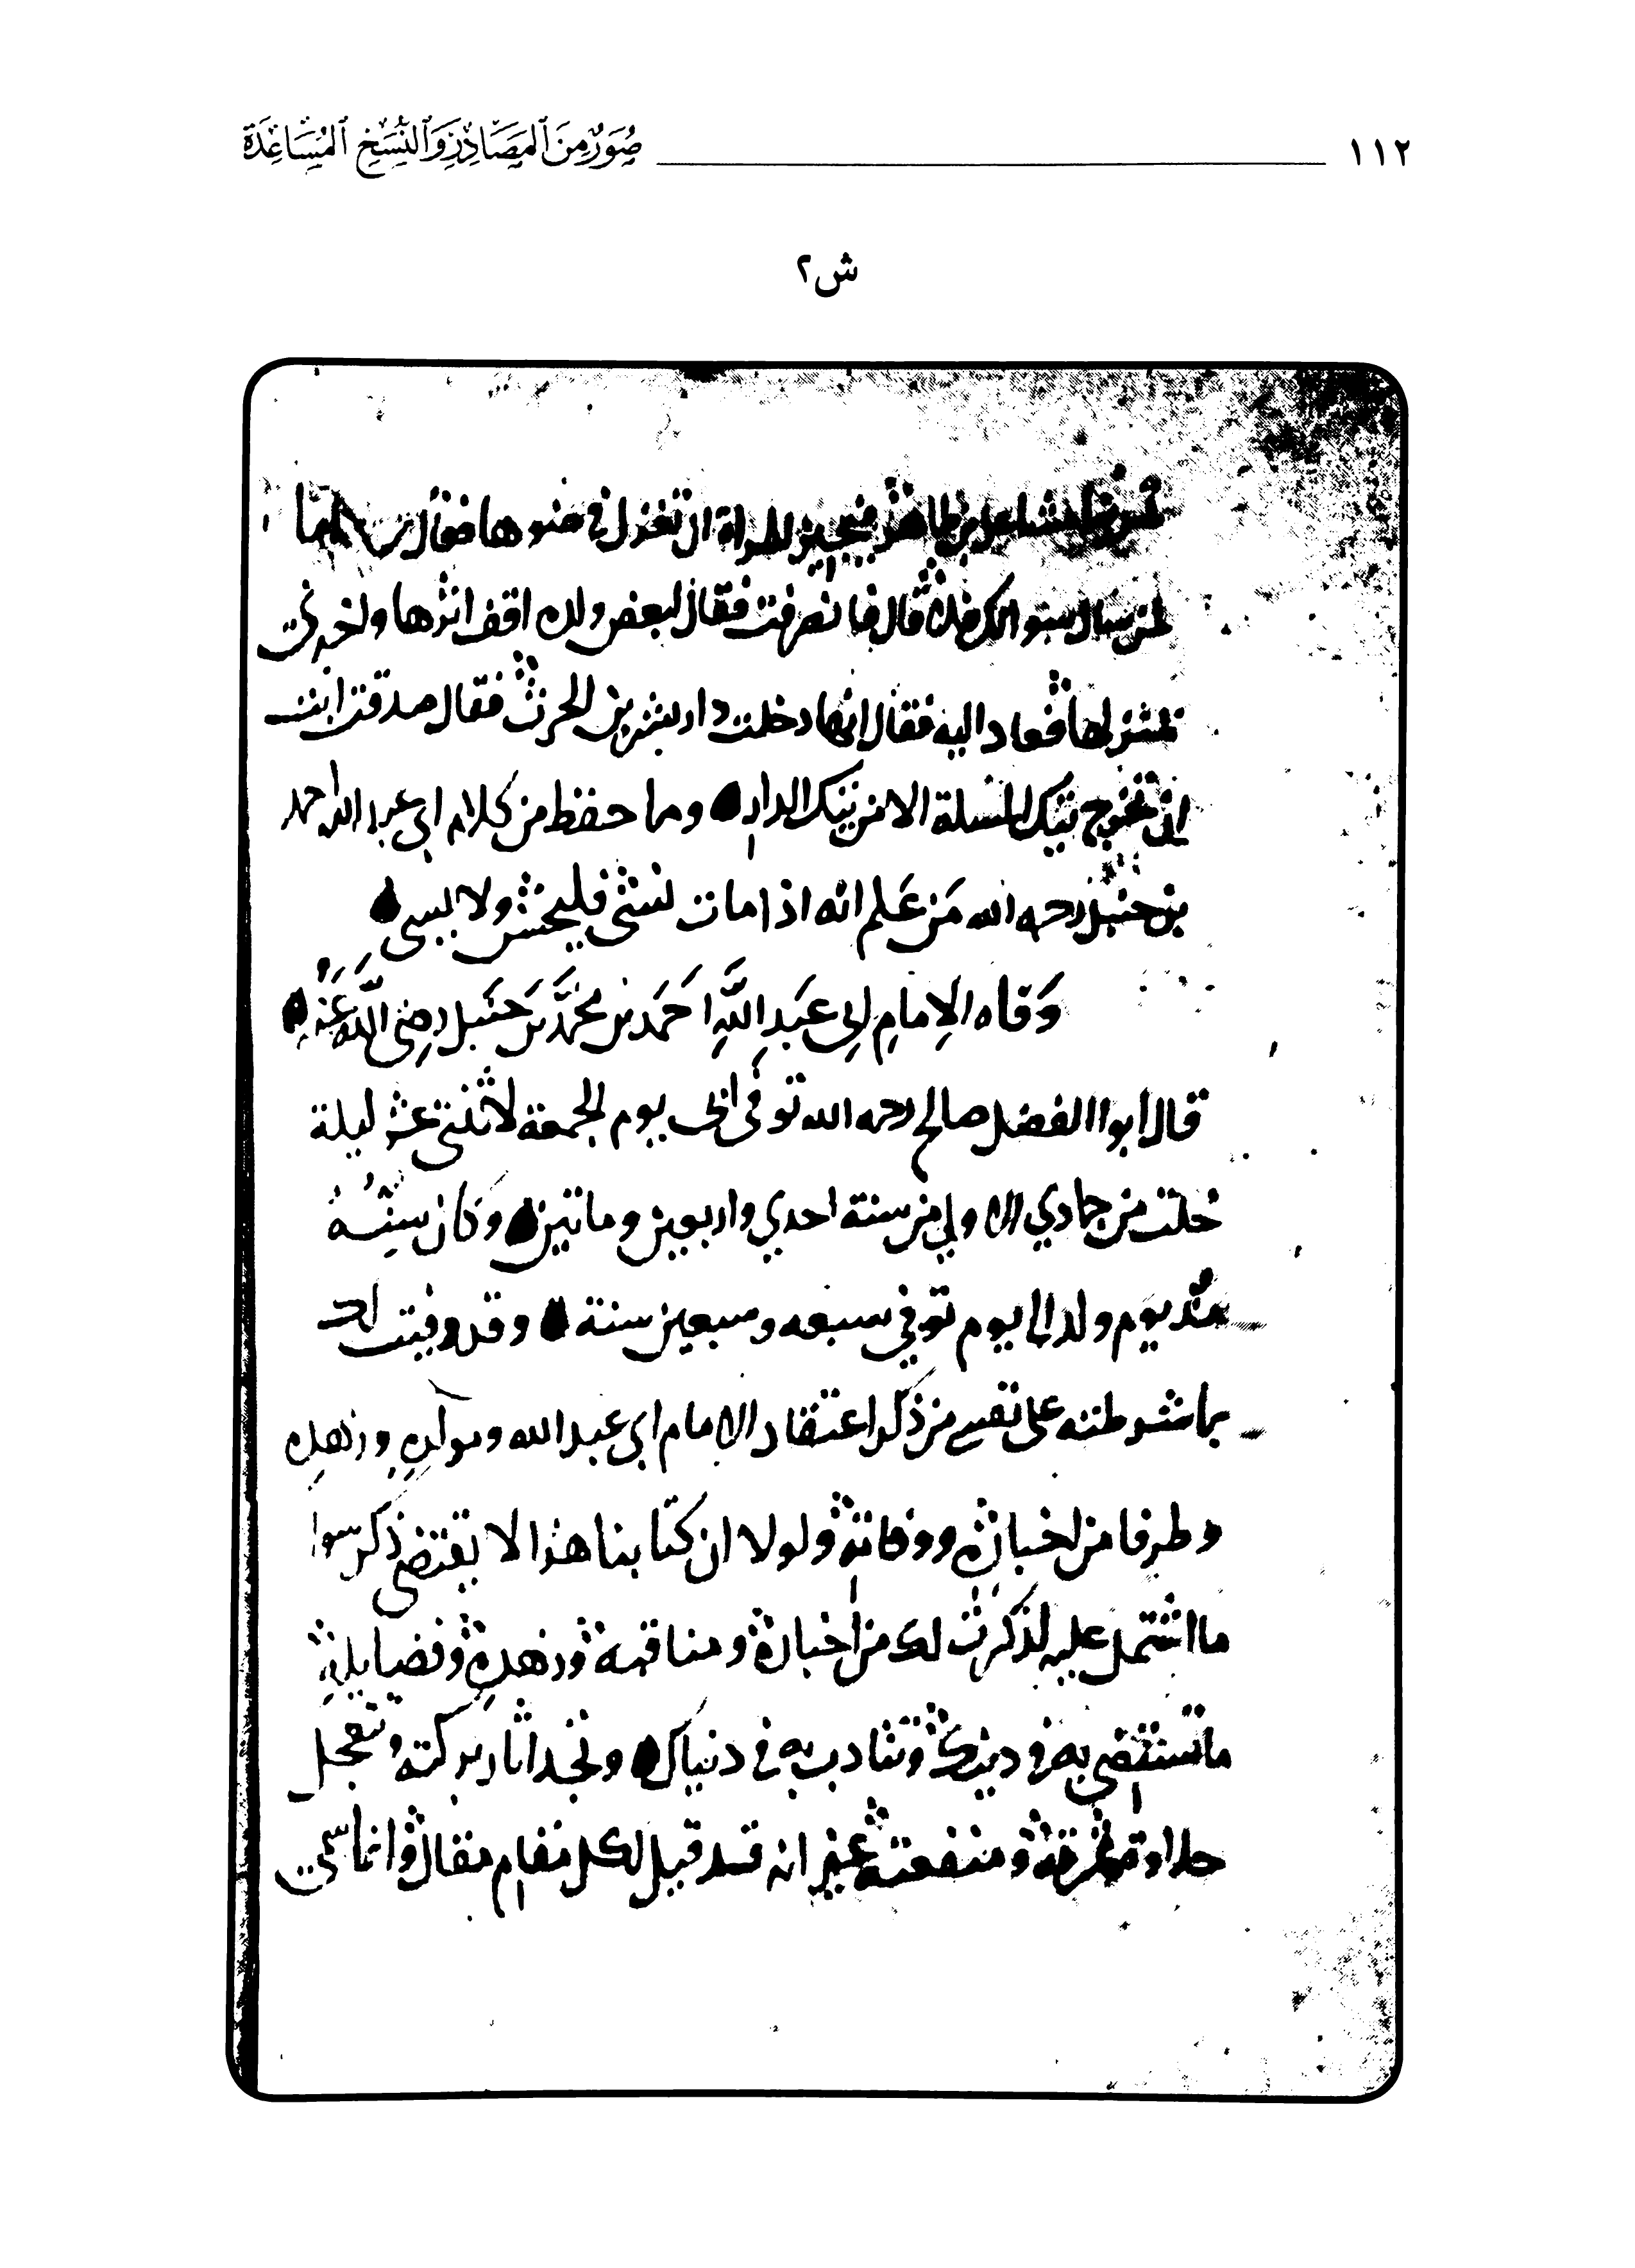 ١١٢
صُوَرٌ مِنَ ٱلمَصَادِرِ وَٱلنُّسَخِ ٱلمُسَاعِدَةِ
ش٢
للمراة ان تغزل في ضوها فقال
قال فانصرفت فقال لبعض ولده اقف اثرها ولخبرني
فعاد اليه فقال انها دخلت دار بشر بن الحرث فقال صدقت انت
ان تخرج تيك المسلة الا من تيك الدار ومما حفظ من كلام ابي عبد الله احمد
بن حنبل رحمه الله مَن عَلم انه اذا مات نسي فليحسن ولا يسي
وَفاه الإمامِ ابي عَبدِ اللَّهِ احَمَد بن محمَّد بن حَنبل رضي اللَّه عَنهُ
قال ابو الفضل صالح رحمه الله توفي ابي يوم الجمعة لاثنتي عشر ليلة
خلت من جمادي الاولي من سنة احدي واربعين وماتين وكان سِنُّهُ
منذ يوم ولد الي يوم توفي سبعه وسبعين سنة وقد وفيت لك
بما شرطته على نفسي من ذكر اعتقاد الامام ابي عبد الله ومولده وزهده
وطرفا من اخباره ووفاته ولولا ان كتابنا هذا لا يقتضي ذكر سوا
ما اشتمل عليه لذكرت لك من اخباره ومناقبه وزهده وفضايله
ما تستضي به في دينك وتتادب به في دنياك وتجد اثار بركته وتتعجل
حلاوة ومنفعته غير انه قد قيل لكل مقام مقال وانما